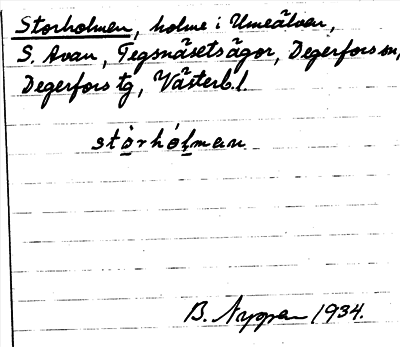 Storholmen, holme i Umeälven,
S. Avan, Tegsnäsets ägor, Degerfors sn,
Degerfors tg, Västerb.l.
stòrhólman
B. Nyppen 1934.